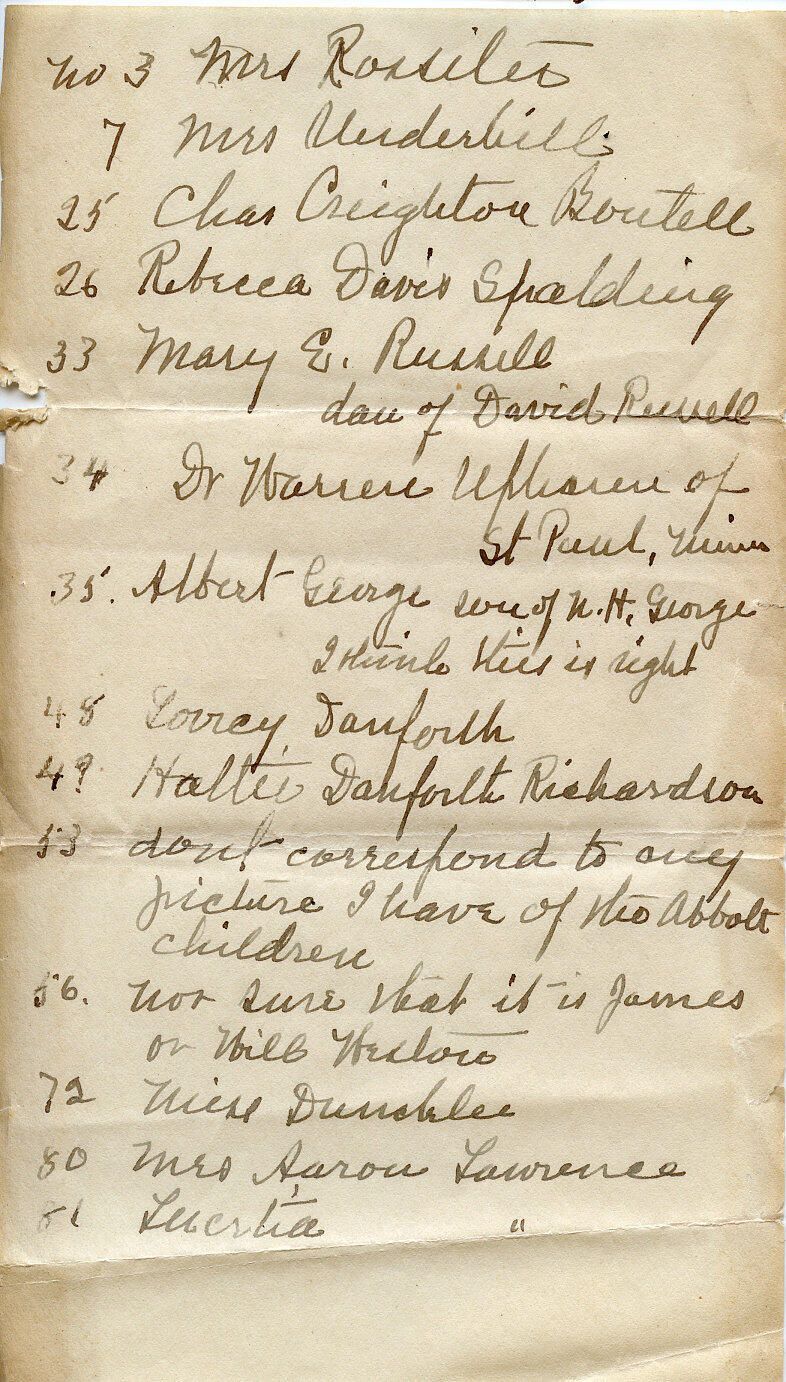 No 3 Mrs Rossiter
7 Mrs Underhill
25 Chas Creighton Boutell
26 Rebecca Davis Spalding
33 Mary E. Russell
dau of David Russell
34 Dr Warren Upham of
St Paul, Minn
35. Albert George son of N. H. George
I think this is right
48 Lovrey Danforth
49 Hattie Danforth Richardson
53 dont correspond to any
picture I have of the Abbott
children
56. not sure that it is James
or Will Weston
72 Miss Duncklee
80 Mrs Aaron Lawrence
81 Lucretia "